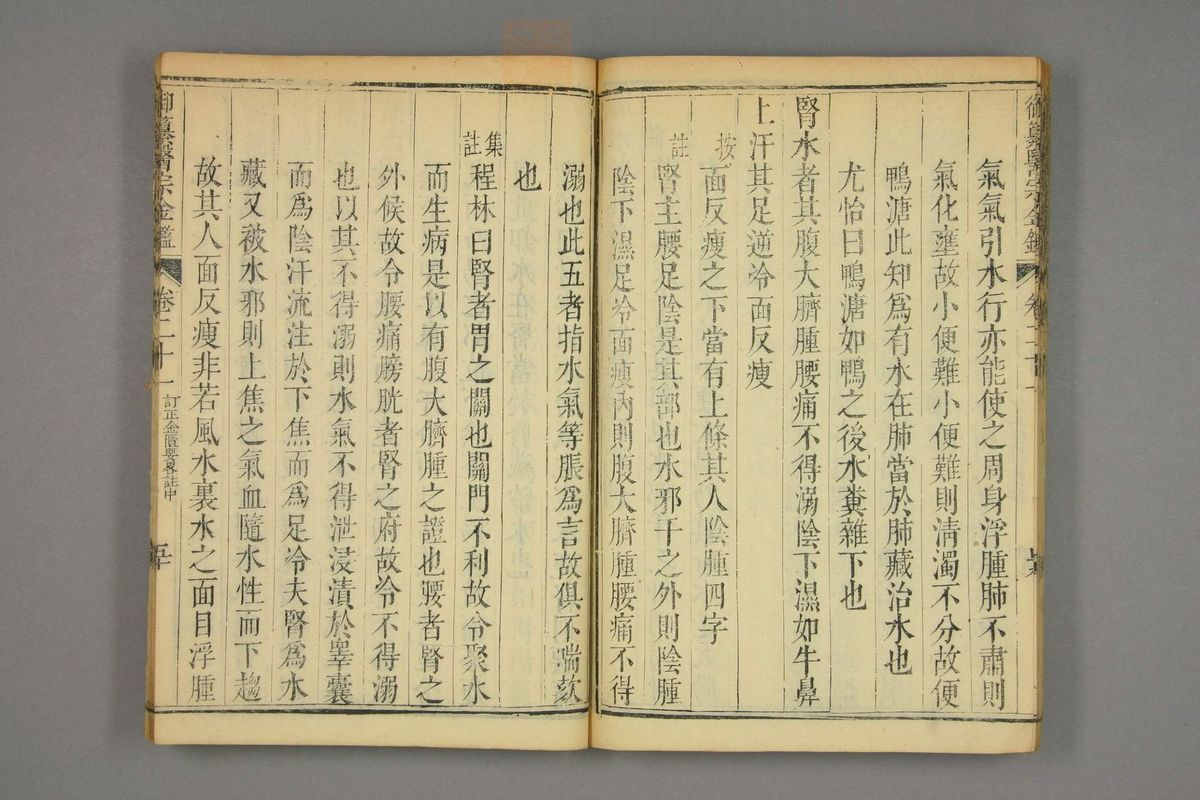 御纂醫宗金鑑 卷二十一
氣氣引水行亦能使之周身浮腫肺不肅則
氣化壅故小便難小便難則清濁不分故便
鴨溏此知爲有水在肺當於肺藏治水也
尤怡曰鴨溏如鴨之後水糞雜下也
腎水者其腹大臍腫腰痛不得溺陰下濕如牛鼻
上汗其足逆冷面反瘦
按面反瘦之下當有上條其人陰腫四字
註腎主腰足陰是其部也水邪干之外則陰腫
陰下濕足冷面瘦內則腹大臍腫腰痛不得
溺也此五者指水氣等脹爲言故俱不喘欬
也
集註程林曰腎者胃之關也關門不利故令聚水
而生病是以有腹大臍腫之證也腰者腎之
外候故令腰痛膀胱者腎之府故令不得溺
也以其不得溺則水氣不得泄浸漬於睾囊
而爲陰汗流注於下焦而爲足冷夫腎爲水
藏又被水邪則上焦之氣血隨水性而下趨
故其人面反瘦非若風水裏水之面目浮腫
御纂醫宗金鑑 卷二十一 訂正金匱要畧註中 五十